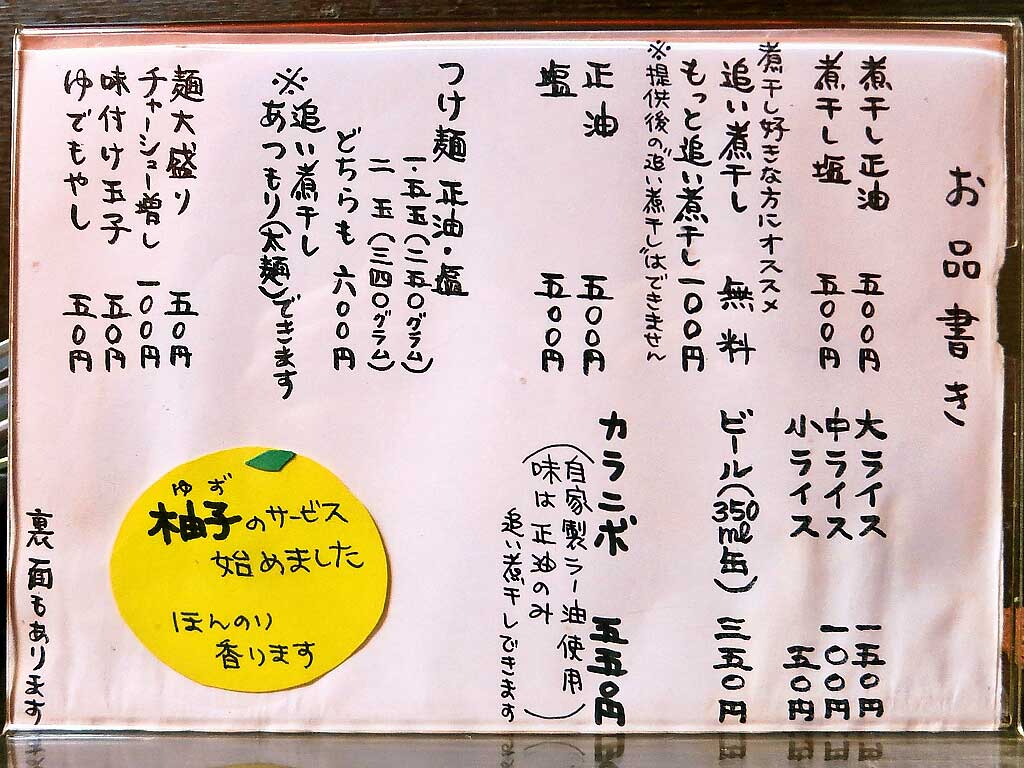 お品書き
煮干し正油 五〇〇円
煮干し塩 五〇〇円
煮干し好きな方にオススメ
追い煮干し 無料
もっと追い煮干し 一〇〇円
※提供後の"追い煮干し"はできません
正油 五〇〇円
塩 五〇〇円
つけ麺 正油・塩
一.五玉(二五〇グラム)
二玉(三四〇グラム)
どちらも 六〇〇円
※追い煮干し
あつもり(太麺)できます
麺大盛り 五〇円
チャーシュー増し 一〇〇円
味付け玉子 五〇円
ゆでもやし 五〇円
大ライス 一五〇円
中ライス 一〇〇円
小ライス 五〇円
ビール(350ml缶) 三五〇円
カラニボ 五五〇円
(自家製ラー油使用
味は正油のみ
追い煮干しできます)
ゆず
柚子のサービス
始めました
ほんのり
香ります
裏面もあります